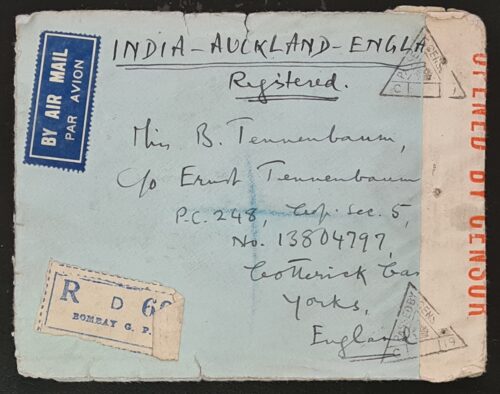 BY AIR MAIL
PAR AVION
INDIA-AUCKLAND-ENGLA
Registered.
Miss B. Tennenbaum,
c/o Ernst Tennenbaum
P.C. 248, Cop. Sec. 5,
No. 13804797,
Cotterick Ca
Yorks,
England
R D 6
BOMBAY G. P.
OPENED BY CENSOR
PASSED BY CENSOR
C 19